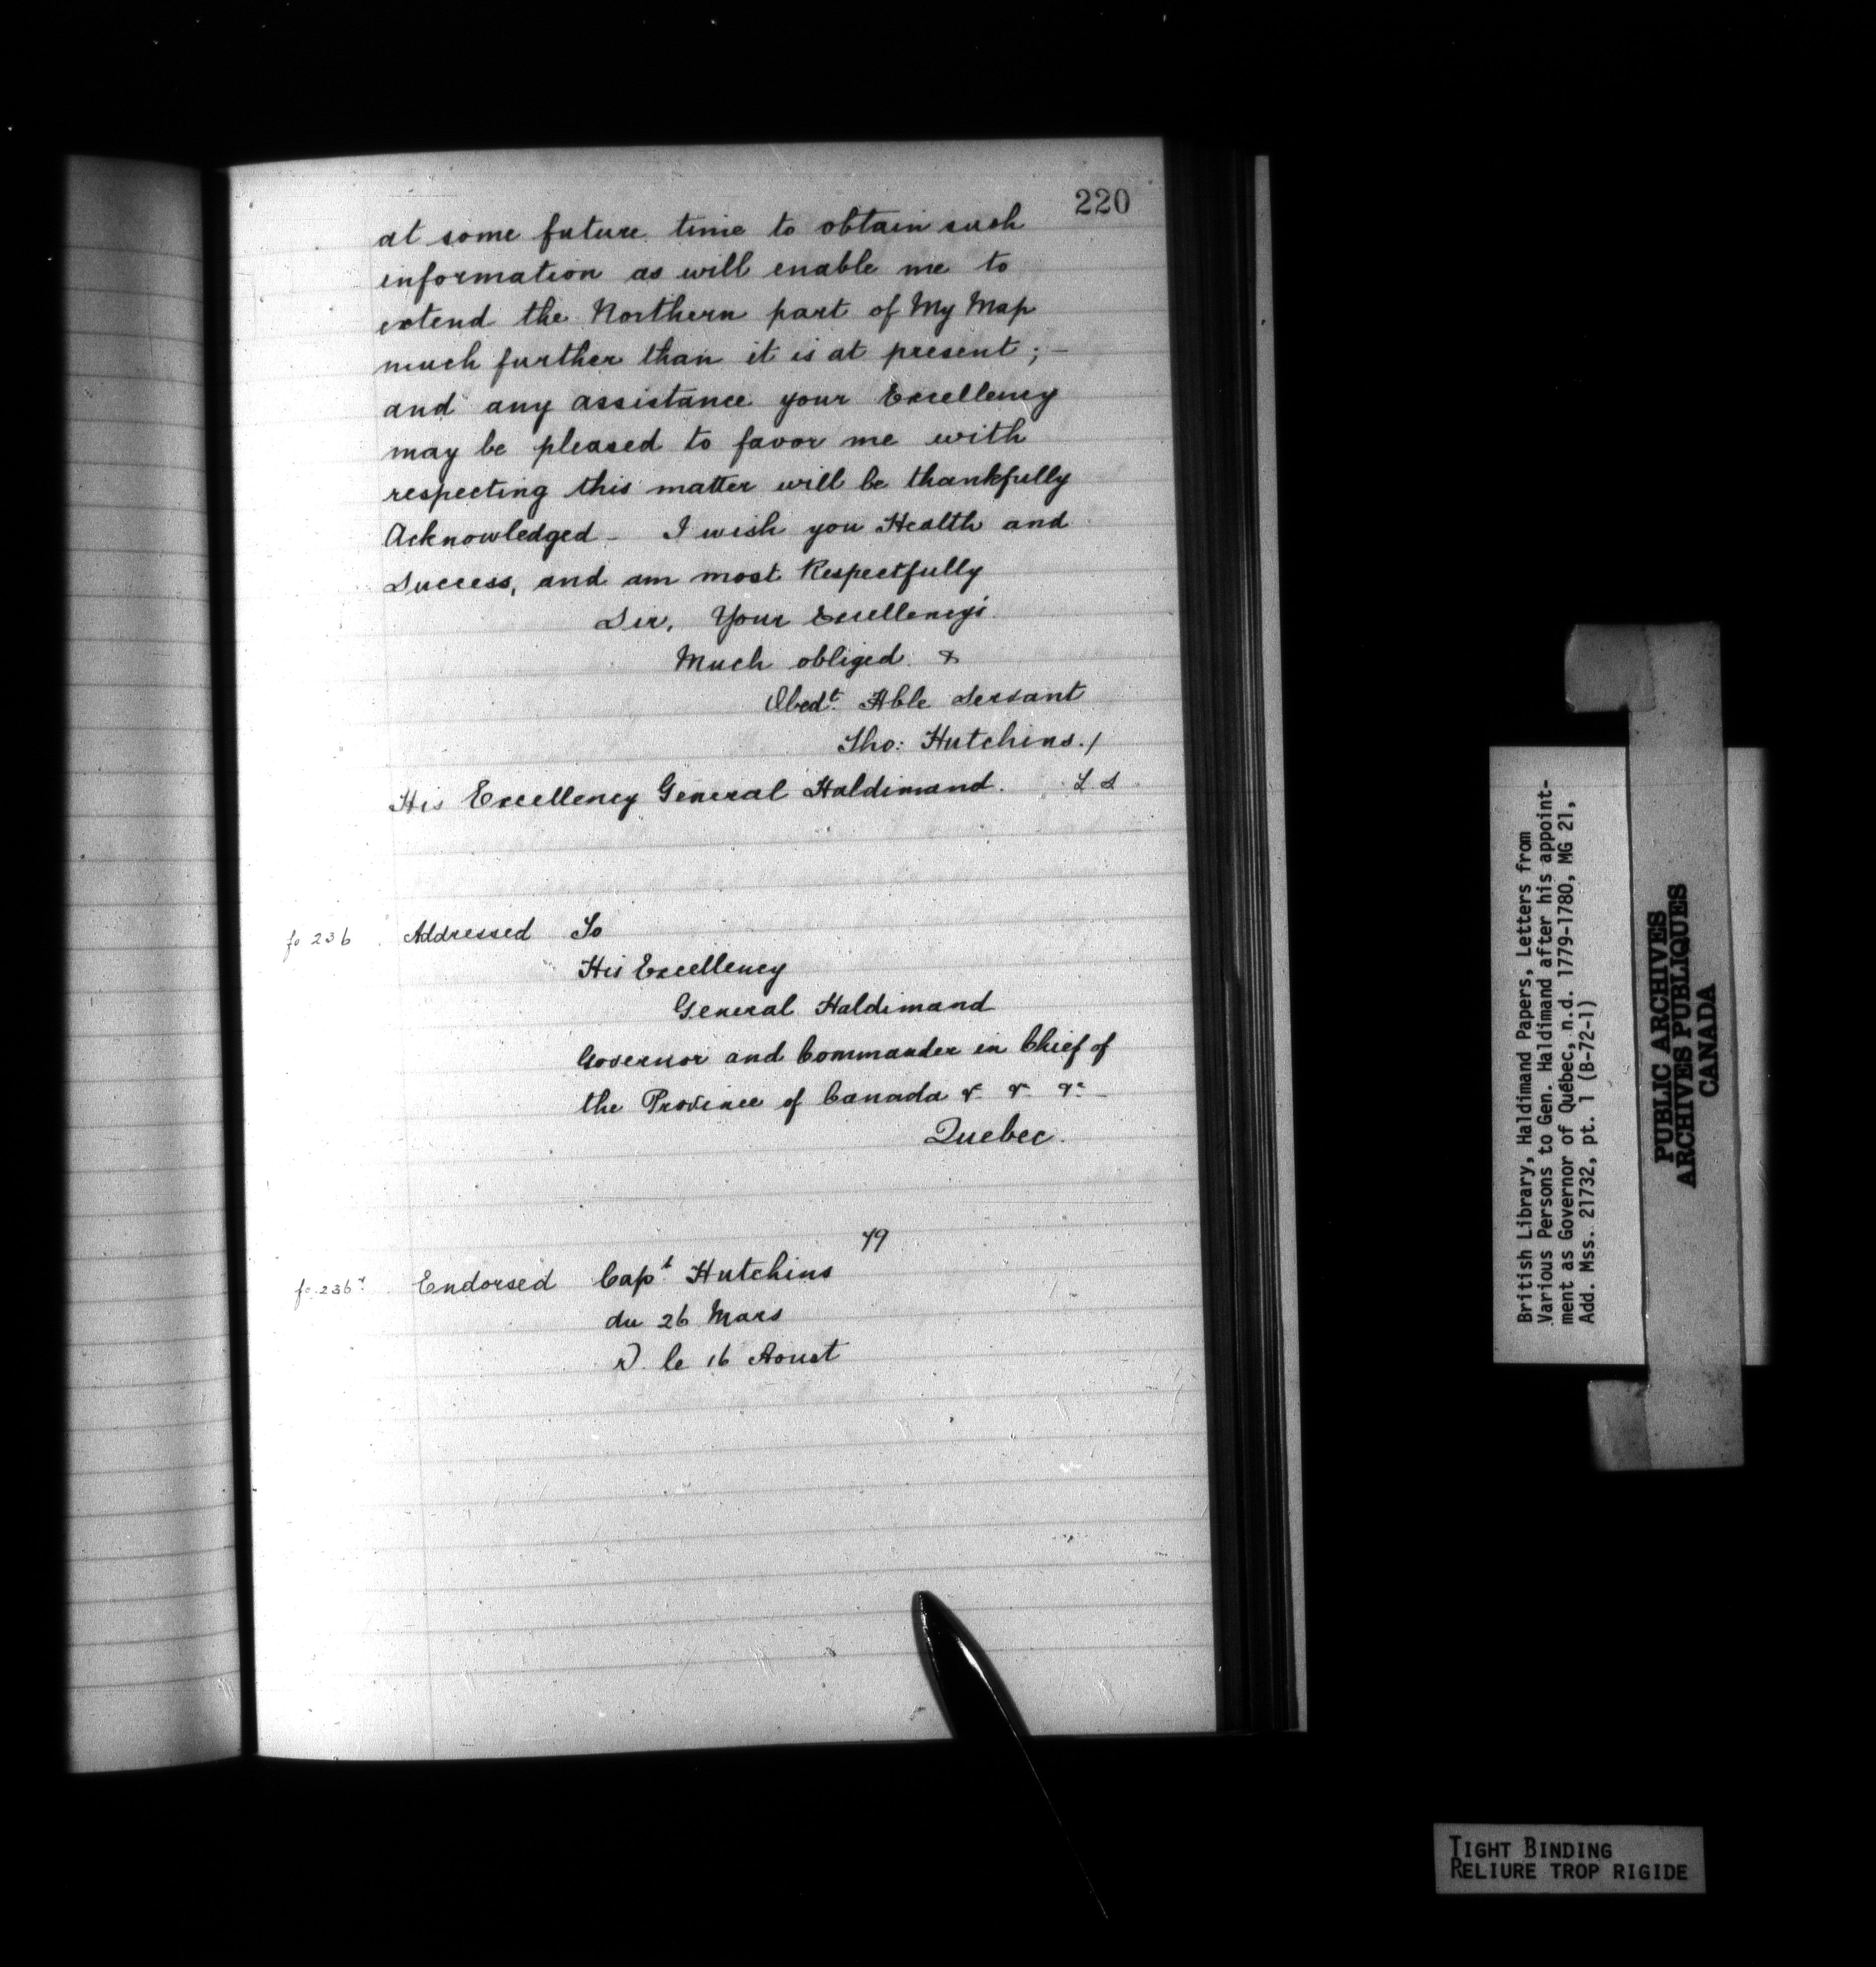 220
at some future time to obtain such
information as will enable me to
extend the Northern part of My Map
much further than it is at present; –
and any assistance your Excellency
may be pleased to favor me with
respecting this matter will be thankfully
Acknowledged – I wish you Health and
Success, and am most Respectfully
Sir, Your Excellency's
Much obliged &
Obedt. Hble Servant
Tho: Hutchins./
His Excellency General Haldimand. L. S
fo 236 Addressed To
His Excellency
General Haldimand
Governor and Commander in Chief of
the Province of Canada &. &. &c. –
Quebec.
79
fo. 236v Endorsed Capt Hutchins
du 26 Mars
le 16 Aoust
British Library, Haldimand Papers, Letters from
Various Persons to Gen. Haldimand after his appoint-
ment as Governor of Québec, n.d. 1779-1780, MG 21,
Add. Mss. 21732, pt. 1 (B-72-1)
PUBLIC ARCHIVES
ARCHIVES PUBLIQUES
CANADA
TIGHT BINDING
RELIURE TROP RIGIDE